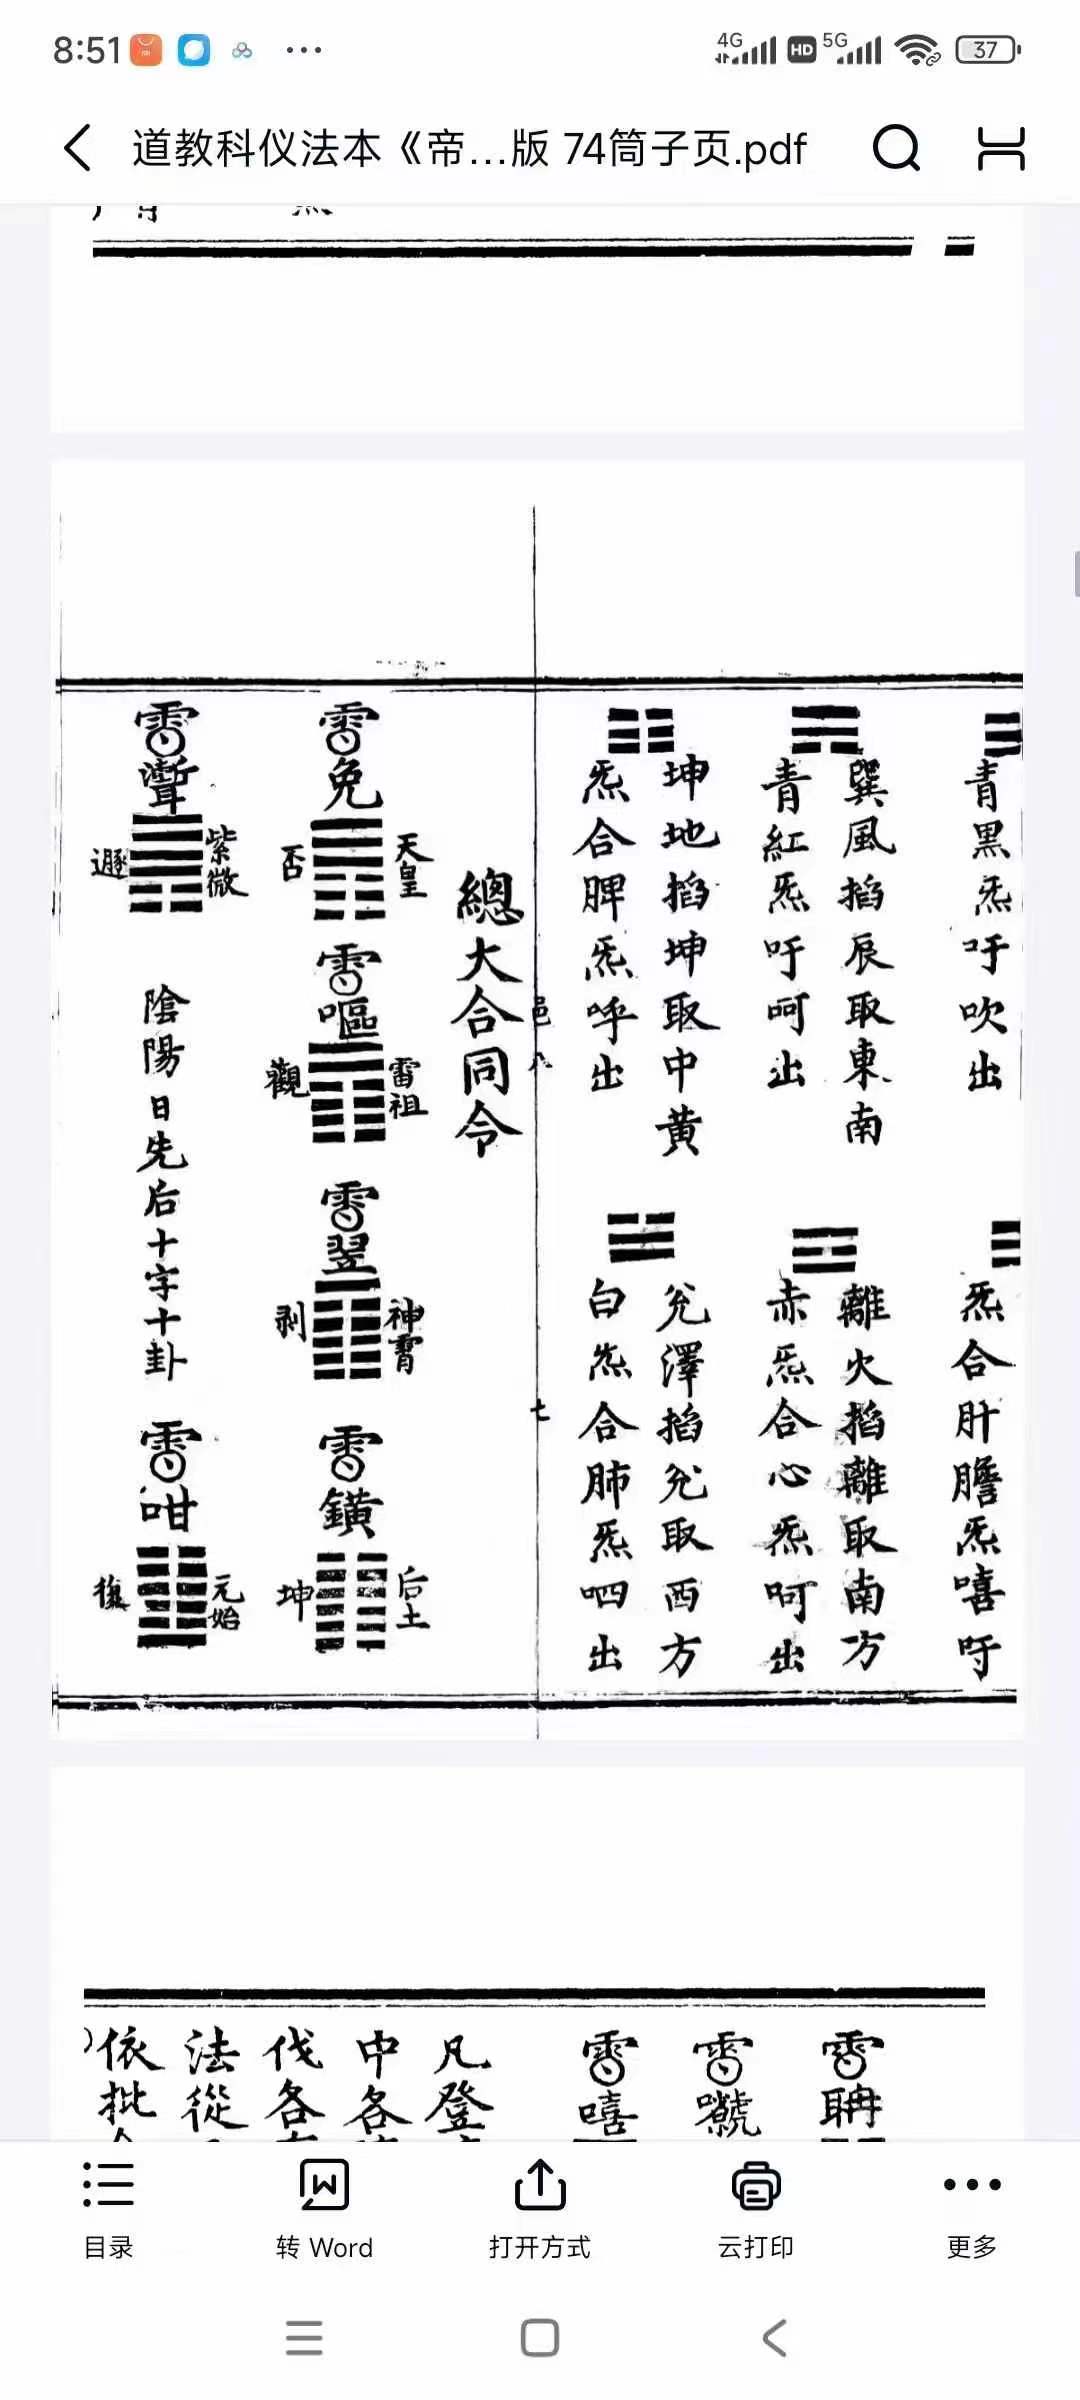 8:51
4G HD 5G 37
道教科仪法本《帝...版 74筒子页.pdf
青黑炁吁吹出
炁合肝膽炁嘻吁
巽風掐辰取東南
青紅炁吁呵出
離火掐離取南方
赤炁合心炁呵出
坤地掐坤取中黄
炁合脾炁呼出
兊澤掐兊取西方
白炁合肺炁呬出
七
總大合同令
免
天皇
否
嘔
雷祖
觀
翌
神霄
剥
鐄
后土
坤
紫微
遯
陰陽日先后十字十卦
咁
元始
復
聃
嘻
凡登
中各
伐各
法從
依批
目录
转 Word
打开方式
云打印
更多